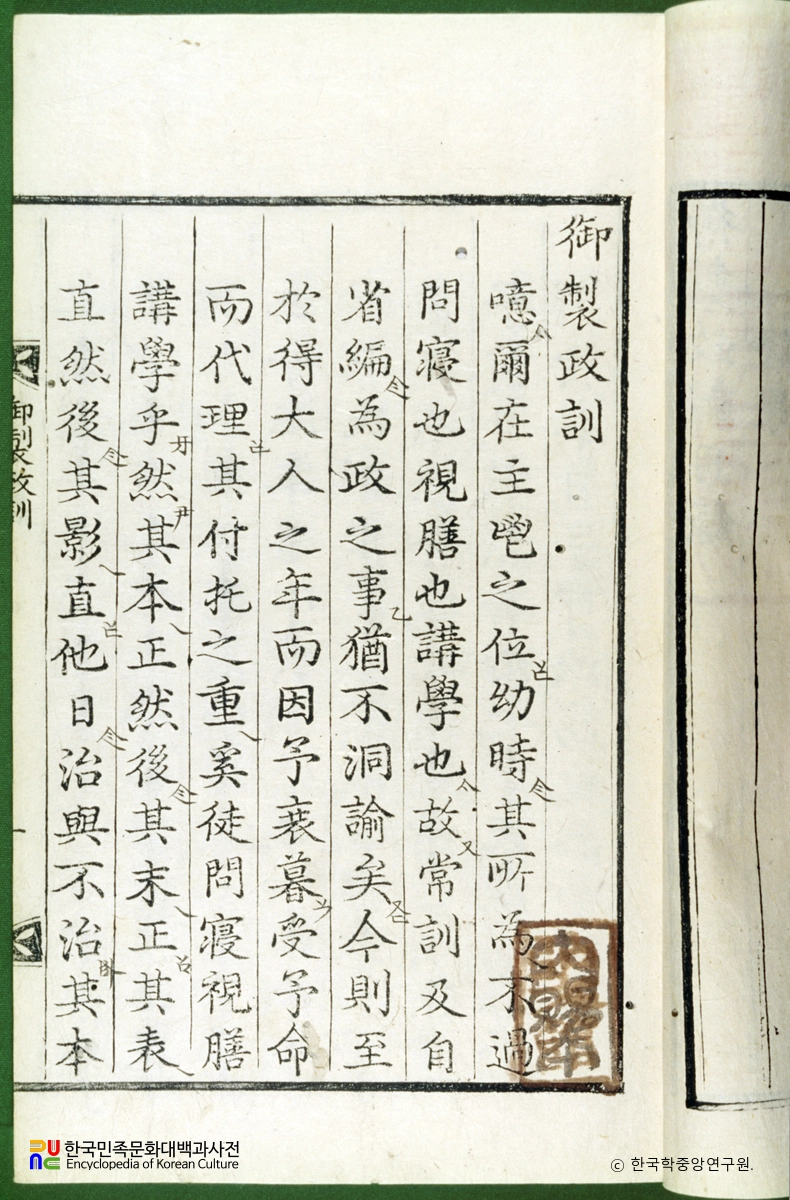 御製政訓
噫爾在主鬯之位幼時其所為不過
問寢也視膳也講學也故常訓及自
省編為政之事猶不洞諭矣今則至
於得大人之年而因予衰暮受予命
而代理其付托之重奚徒問寢視膳
講學乎然其本正然後其末正其表
直然後其影直他日治與不治其本
御製政訓
一
한국민족문화대백과사전
Encyclopedia of Korean Culture
ⓒ 한국학중앙연구원.